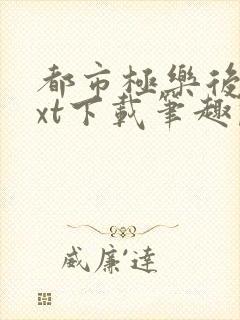 都市極樂後
xt下載筆趣
威廉·達